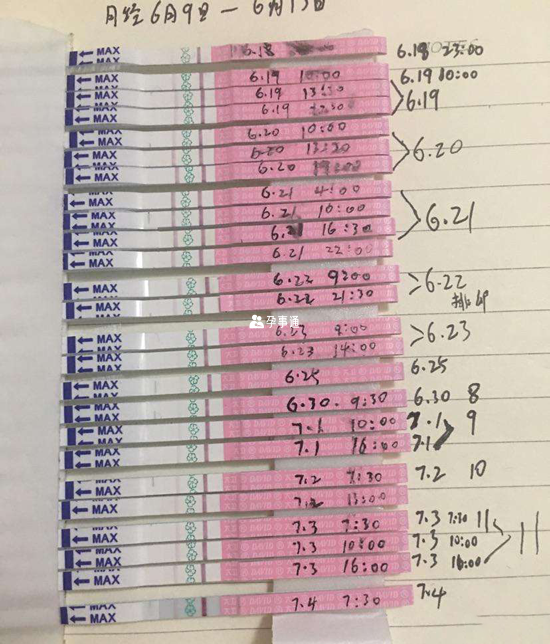 月经6月9日 — 6月13日
MAX 6.18 6.18 23:00
MAX 6.19 10:00 6.19 10:00
MAX 6.19 13:30 6.19
MAX 6.19
MAX 6.20 10:00
MAX 6.20 13:30 6.20
MAX 6.20 19:00
MAX 6.21 4:00
MAX 6.21 10:00 6.21
MAX 6.21 16:30
MAX 6.21 22:00
MAX 6.22 9:00 6.22
MAX 6.22 21:30 排卵
孕事通
MAX 6.23 9:00 6.23
MAX 6.23 14:00
MAX 6.25 6.25
MAX 6.30. 9:30 6.30 8
MAX 7.1 10:00 7.1 9
MAX 7.1 16:00 7.1
MAX 7.2 7:30 7.2 10
MAX 7.2 13:00
MAX 7.3 7:30 7.3 7:30 11
MAX 7.3 10:00 7.3 10:00 11
MAX 7.3 16:00 7.3 16:00
MAX
MAX 7.4 7:30 7.4